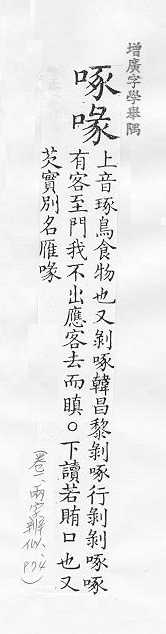 增廣字學舉隅
啄喙
上音琢鳥食物也又剝啄韓昌黎剝啄行剝剝啄啄
有客至門我不出應客去而瞋。下讀若賄口也又
芡實別名雁喙
(卷一兩字辨似.P74)